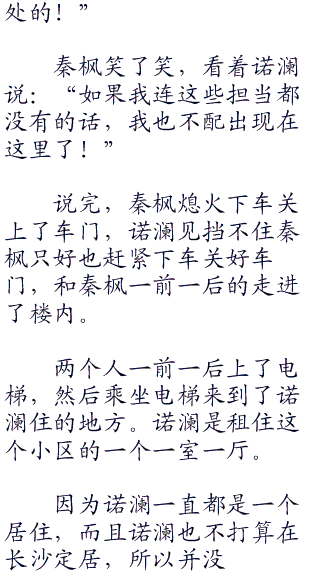 处的！”
秦枫笑了笑，看着诺澜
说：“如果我连这些担当都
没有的话，我也不配出现在
这里了！”
说完，秦枫熄火下车关
上了车门，诺澜见挡不住秦
枫只好也赶紧下车关好车
门，和秦枫一前一后的走进
了楼内。
两个人一前一后上了电
梯，然后乘坐电梯来到了诺
澜住的地方。诺澜是租住这
个小区的一个一室一厅。
因为诺澜一直都是一个
居住，而且诺澜也不打算在
长沙定居，所以并没